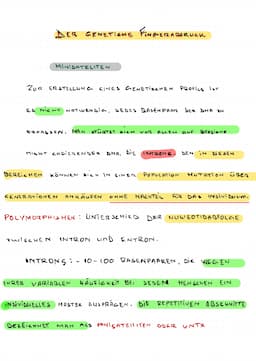 DER GENETISCHE FINGERABDRUCK
MINISATELITEN
ZUR ERSTELLUNG EINES GENETISCHEN PROFILS IST
ES NICHT NOTWENDIG, JEDES BASENPAAR DER DNA ZU
ERFASSEN. MAN STÜTZT SICH VOR ALLEM AUF BEREICHE
NICHT CODIERENDER DNA, DIE INTRONS. DEN IN DIESEN
BEREICHEN KÖNNEN SICH IN EINER POPULATION MUTATION ÜBER
GENERATIONEN ANHÄUFEN OHNE NACHTEIL FÜR DAS INDIVIDUUM.
POLYMORPHISMEN: UNTERSCHIED DER NUKLEOTIDABFOLGE
ZWISCHEN INTRON UND EXTRON.
INTRONS: - 10-100 BASENPAAREN, DIE WEGEN
IHRER VARIABLEN HÄUFIGKEIT BEI JEDEM MENSCHEN EIN
INDIVIDUELLES MUSTER AUSPRÄGEN. DIE REPETITIVEN ABSCHNITTE
BEZEICHNET MAN ALS MINISATELITEN ODER VNTR